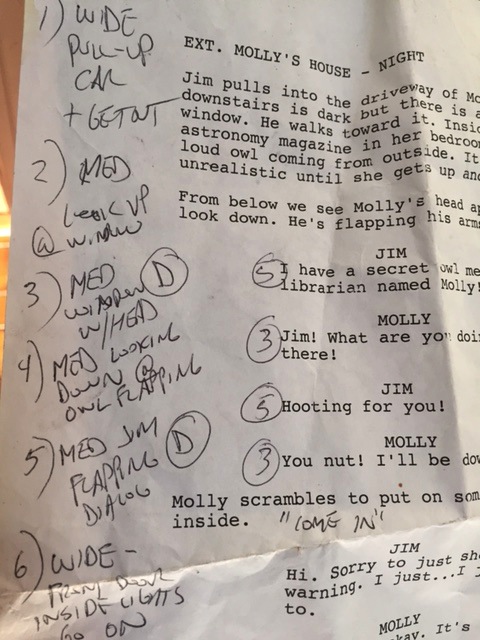 1) WIDE
PULL-UP
CAR
+ GET OUT
2) MED
LOOK UP
@ WINDOW
3) MED D
WINDOW
W/HEAD
4) MED LOOKING
DOWN @
OWL FLAPPING
5) MED JIM D
FLAPPING
DIALOG
6) WIDE -
FRONT DOOR
INSIDE LIGHTS
GO ON
EXT. MOLLY'S HOUSE - NIGHT
Jim pulls into the driveway of Mo
downstairs is dark but there is a
window. He walks toward it. Insid
astronomy magazine in her bedroo
loud owl coming from outside. It
unrealistic until she gets up and
From below we see Molly's head ap
look down. He's flapping his arms
JIM
5 I have a secret owl me
librarian named Molly!
MOLLY
3 Jim! What are you doi
there!
JIM
5 Hooting for you!
MOLLY
3 You nut! I'll be dow
Molly scrambles to put on som
inside. "COME IN"
JIM
Hi. Sorry to just sho
warning. I just...I j
to.
MOLLY
okay. It's